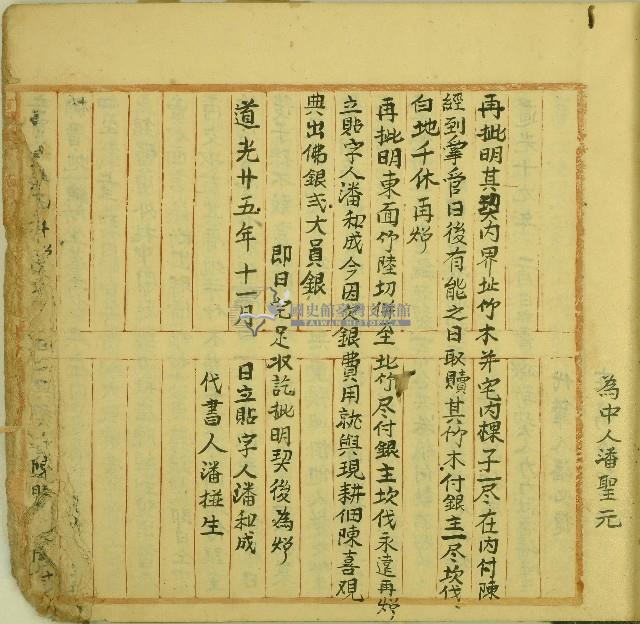 為中人潘聖元
再批明其契內界址竹木并宅內棵子一尽在內付陳
經到掌管日後有能之日取贖其竹木付銀主一尽坎伐
白地千休再炤
再批明東面竹陸切 至北竹尽付銀主坎伐永遠再炤
立貼字人潘和成今因乏銀費用就與現耕佃陳喜观
典出佛銀弍大員銀
即日完足收訖批明契後為炤
道光廿五年十一月 日立貼字人潘和成
代書人潘㨗生
國史館臺灣文獻館
TAIWAN HISTORICA